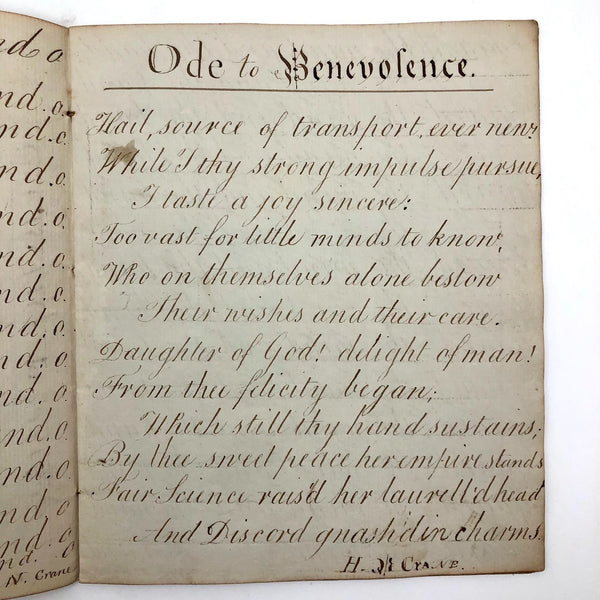 nd o
nd. o.
nd. o.
nd. o.
nd. o.
nd. o.
nd. o.
nd. o.
nd. o.
nd. o.
nd. o.
nd. o.
nd. o.
nd. o
N. Crane
Ode to Benevolence.
Hail, source of transport, ever new;
While I thy strong impulse pursue,
I taste a joy sincere:
Too vast for little minds to know,
Who on themselves alone bestow
Their wishes and their care.
Daughter of God! delight of man!
From thee felicity began;
Which still thy hand sustains;
By thee sweet peace her empire stands
Fair Science rais'd her laurell'd head
And Discord gnash'd in charms.
H. N Crane.